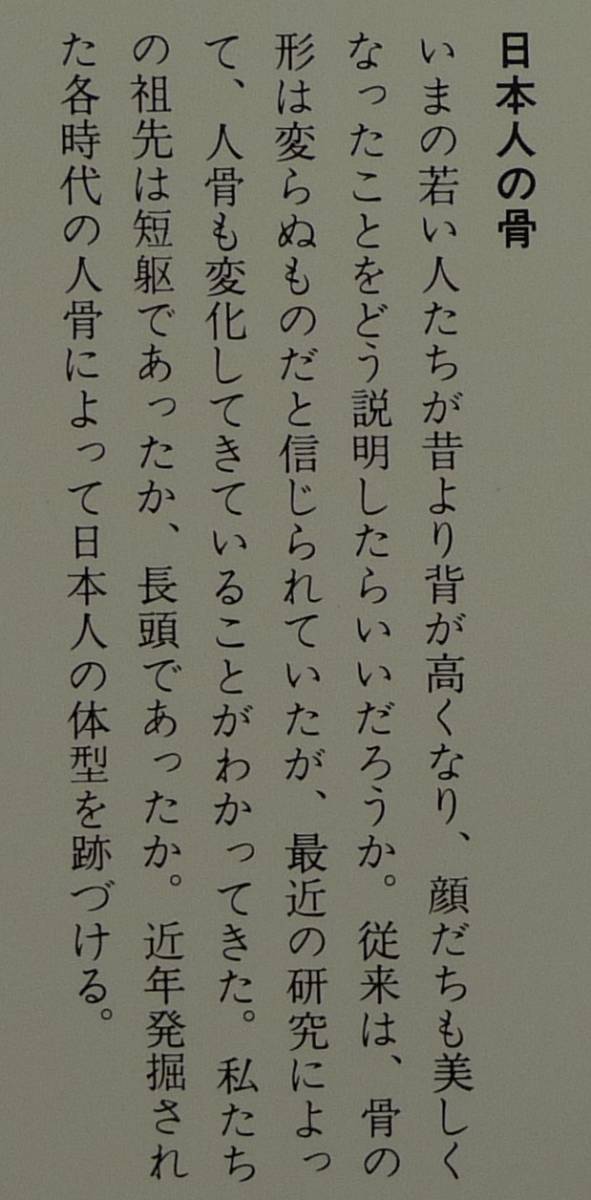 日本人の骨
いまの若い人たちが昔より背が高くなり、顔だちも美しく
なったことをどう説明したらいいだろうか。従来は、骨の
形は変らぬものだと信じられていたが、最近の研究によっ
て、人骨も変化してきていることがわかってきた。私たち
の祖先は短躯であったか、長頭であったか。近年発掘され
た各時代の人骨によって日本人の体型を跡づける。